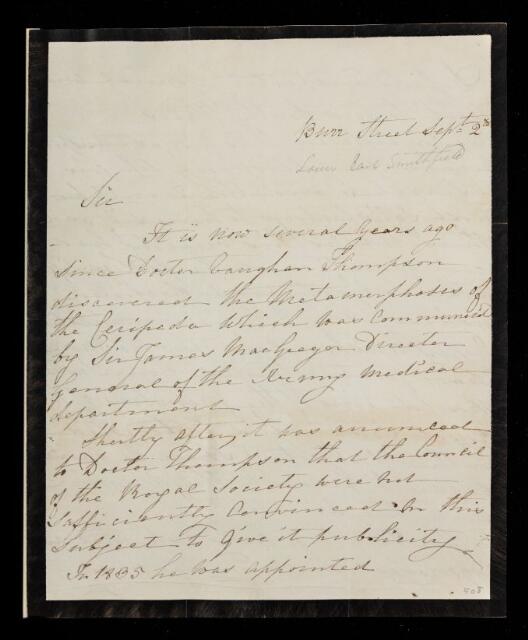 Burr Street Sept. 2d
Lower East Smithfield
Sir
It is now several Years ago
since Doctor Vaughan Thompson
discovered the Metamorphoses of
the Ceripeda which was Communicd
by Sir James MacGregor Director
General of the Army Medical
department
Shortly after, it was announced
to Doctor Thompson that the Council
of the Royal Society were not
sufficiently convinced on this
subject to give it publicity
In 1835 he was appointed
508